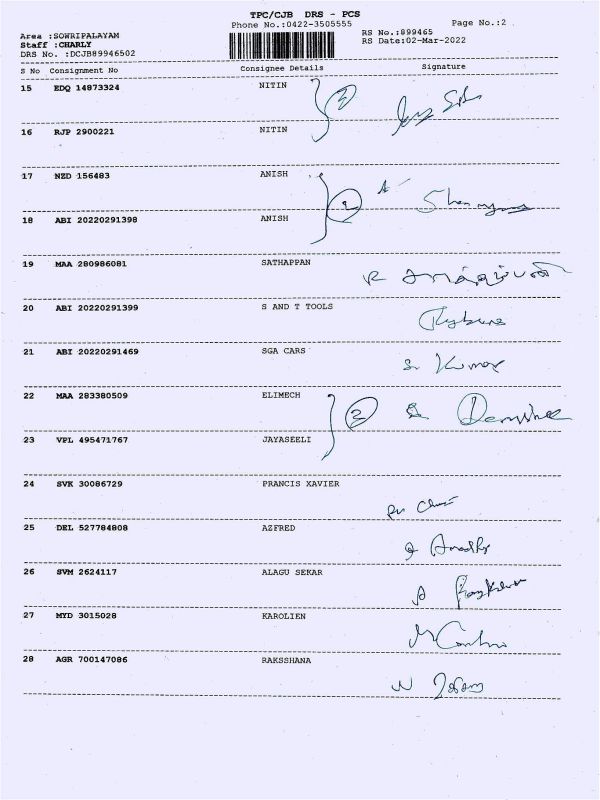 TPC/CJB DRS - PCS
Phone No.:0422-3505555
Page No.:2
Area :SOWRIPALAYAM
Staff :CHARLY
DRS No. :DCJB89946502
RS No.:899465
RS Date:02-Mar-2022
S No Consignment No Consignee Details Signature
15 EDQ 14873324 NITIN
2
16 RJP 2900221 NITIN
17 NZD 156483 ANISH
2
18 ABI 20220291398 ANISH
19 MAA 280986081 SATHAPPAN
20 ABI 20220291399 S AND T TOOLS
21 ABI 20220291469 SGA CARS
S. Kumar
22 MAA 283380509 ELIMECH
2
23 VPL 495471767 JAYASEELI
24 SVK 30086729 PRANCIS XAVIER
25 DEL 527784808 AZFRED
26 SVM 2624117 ALAGU SEKAR
27 MYD 3015028 KAROLIEN
28 AGR 700147086 RAKSSHANA